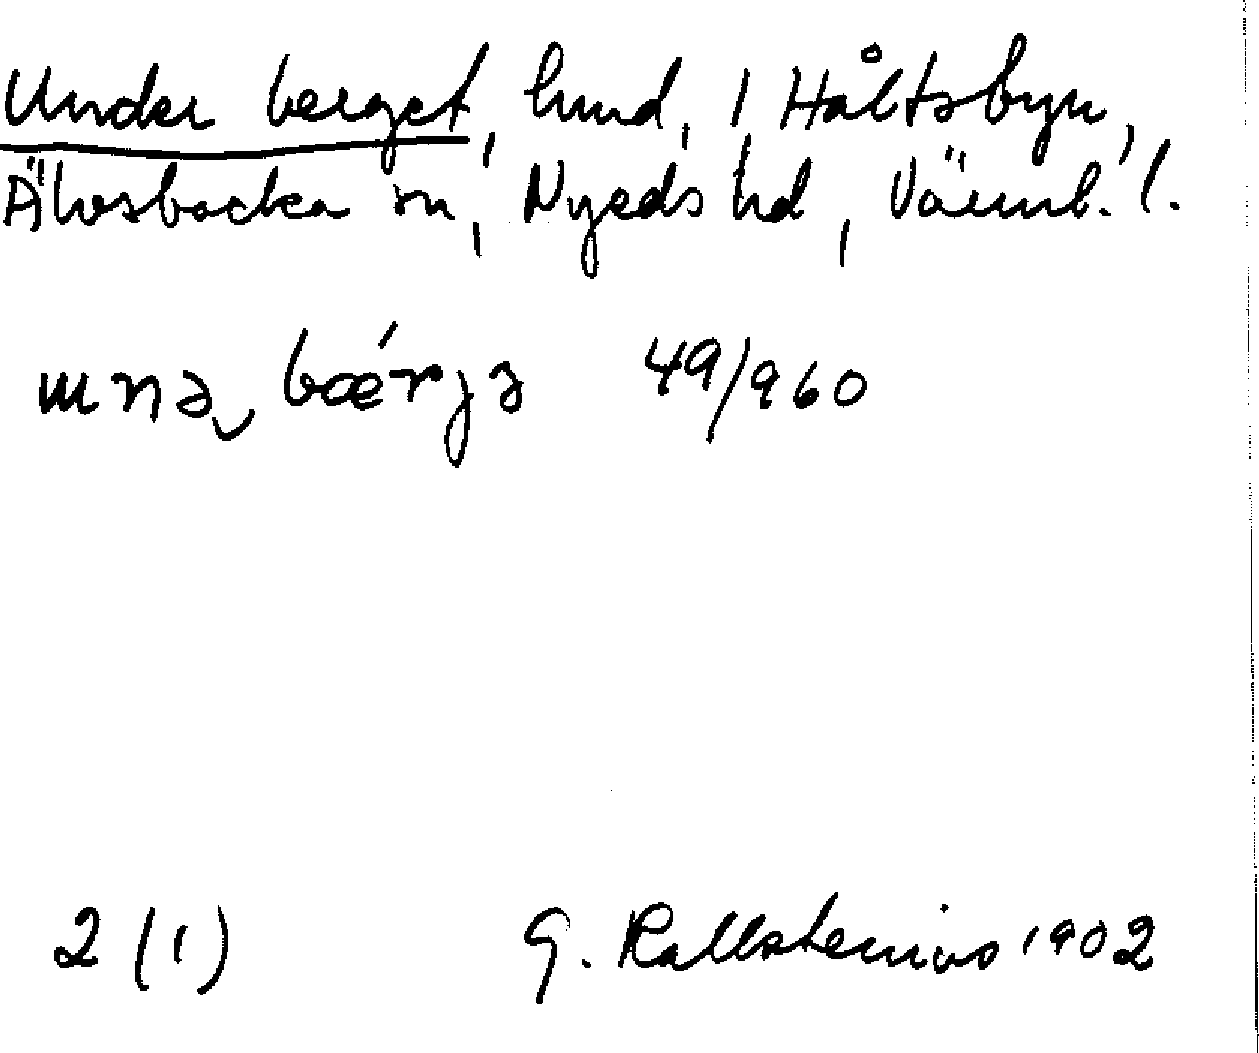 Under berget, lund, i Håltsbyn,
Älvsbacka sn, Nyeds hd, Värml. l.
ɯnə bǽrjə 49/960
2 (1) G. Kallstenius 1902